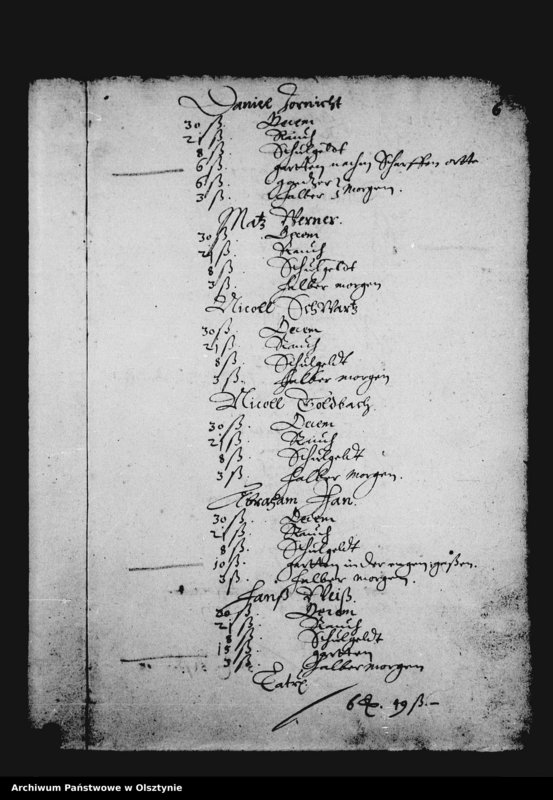 6
Daniel Jornicht
30 ß. Decem
21 ß. Rauch
8 ß. Schulgeldt
6 ß. gartten nachm Scharffen ortte
6 ß.
3 ß. halber Morgen.
Matz Werner.
30 ß. Decem
21 ß. Rauch
8 ß. Schulgeldt
3 ß. halber morgen
Nicoll Schwartz
30 ß. Decem
21 ß. Rauch
8 ß. Schulgeldt
3 ß. halber morgen
Nicoll Goldbach.
30 ß. Decem
21 ß. Rauch
8 ß. Schulgeldt
3 ß. halber morgen.
Abraham Han.
30 ß. Decem
21 ß. Rauch
8 ß. Schulgeldt
10 ß. gartten in der engen gaßen.
3 ß. halber morgen.
Hanß Weiß.
30 ß. Decem
21 ß. Rauch
8 ß. Schulgeldt
15 ß. gartten
3 ß. halber morgen
6 19 ß.-
Archiwum Państwowe w Olsztynie